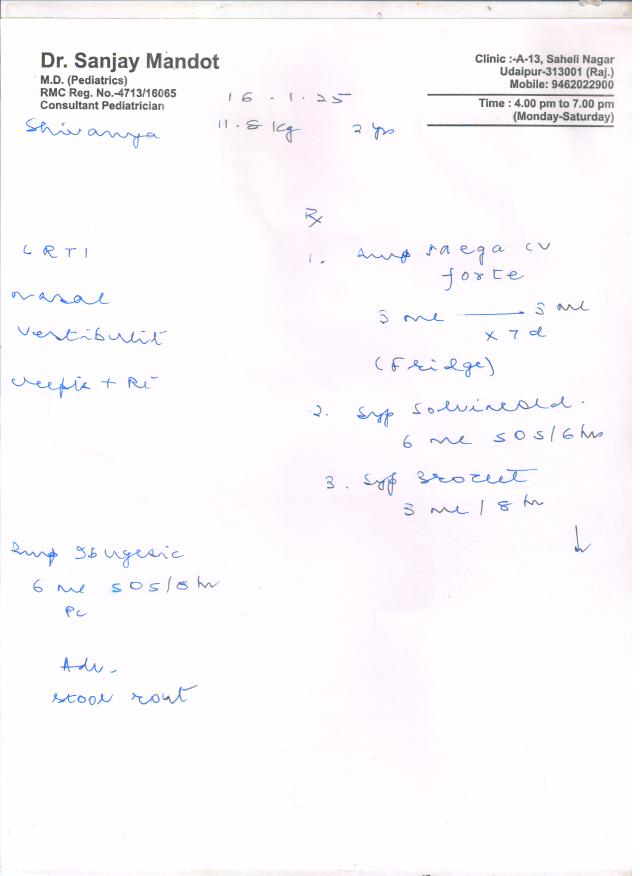 Dr. Sanjay Mandot
M.D. (Pediatrics)
RMC Reg. No.-4713/16065
Consultant Pediatrician
Clinic :-A-13, Saheli Nagar
Udaipur-313001 (Raj.)
Mobile: 9462022900
Time : 4.00 pm to 7.00 pm
(Monday-Saturday)
16.1.25
Shivanya 11.8 kg 2 yrs
LRTI
nasal
vestibulit
Rx
1. Syp CV
forte
3 ml 3 ml
x 7 d
(Fridge)
2. Syp
6 ml SOS/6 hrs
3. Syp
3 ml/8 hr
↓
Syp Ibugesic
6 ml SOS/8 hr
PC
Adv.
stool rout